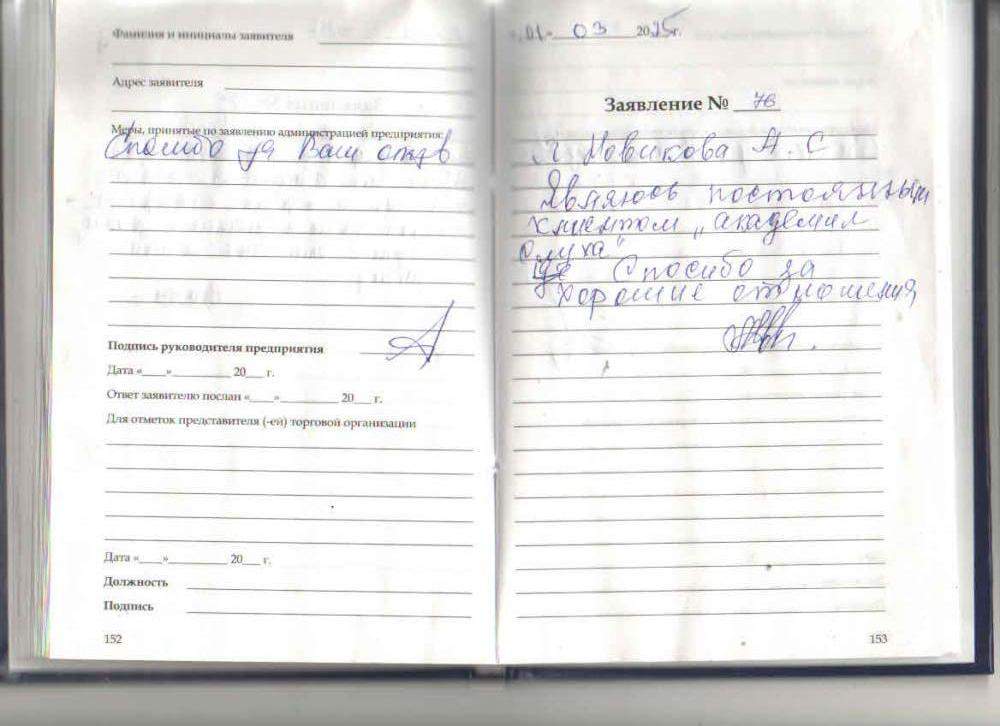 Фамилия и инициалы заявителя
Адрес заявителя
Меры, принятые по заявлению администрацией предприятия:
Спасибо за Ваш отзыв
Подпись руководителя предприятия
Дата «___»________ 20__ г.
Ответ заявителю послан «___»________ 20__ г.
Для отметок представителя (-ей) торговой организации
Дата «___»________ 20__ г.
Должность
Подпись
152
«01» 03 2025г.
Заявление № 76
Я Новикова А. С
Являюсь постоянным
клиентом „академия
слуха"
Спосибо за
хорошие отношения
153